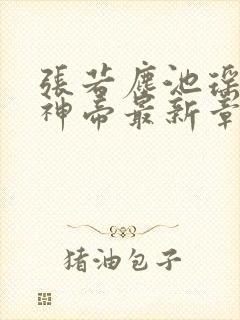 張若塵池瑤
神帝最新章
猪油包子